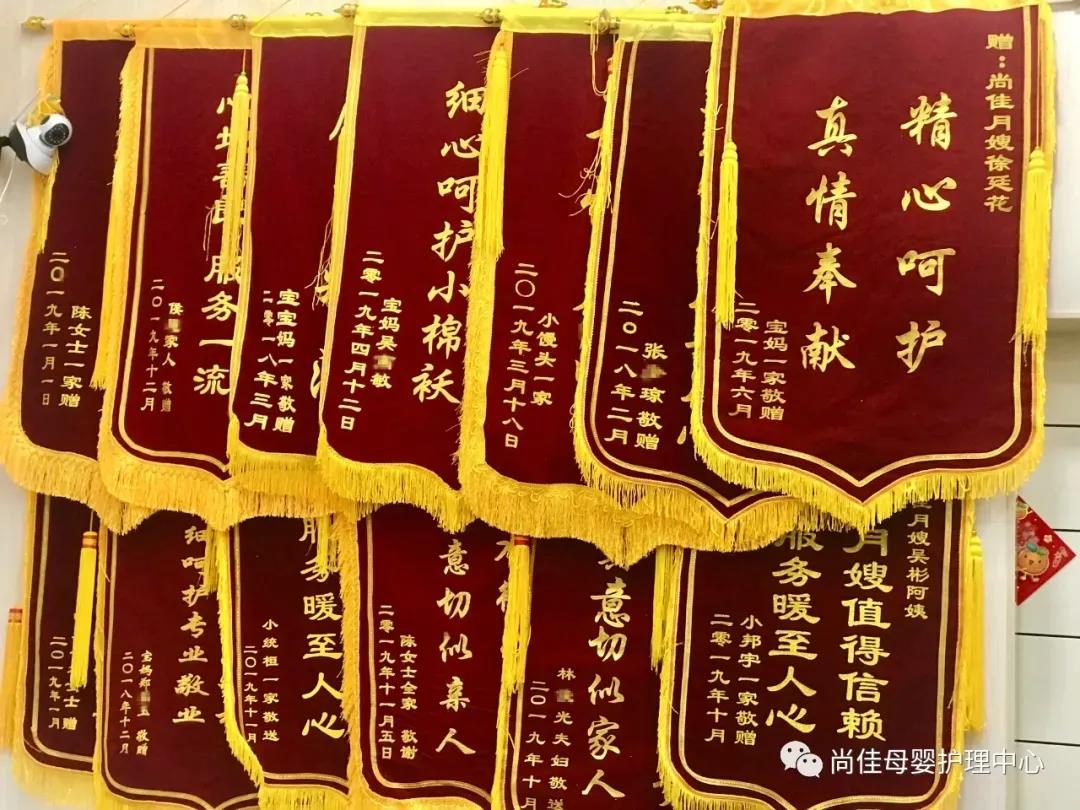 赠：尚佳月嫂徐廷花
精心呵护
真情奉献
宝妈一家敬赠
二零一九年六月
张 琼敬赠
二〇一八年二月
小馒头一家
二〇一九年三月十八日
细心呵护小棉袄
宝妈吴 敏
二零一九年四月十二日
宝宝妈一家敬赠
二零一八年三月
心地善良 服务一流
侯 家人 敬赠
二〇一九年十二月
陈女士一家赠
二〇一九年一月一日
佳月嫂吴彬阿姨
月嫂值得信赖
服务暖至人心
小邦宇一家敬赠
二零一九年十月
意切似家人
林 光夫妇敬送
二〇一九年十月
意切似亲人
陈女士全家 敬谢
二零一九年十一月五日
服务暖至人心
小统桓一家敬送
二〇一九年十一月
细呵护专业敬业
宝妈郑 玉 敬赠
二〇一八年十二月
士赠
二〇一九年一月
尚佳母婴护理中心